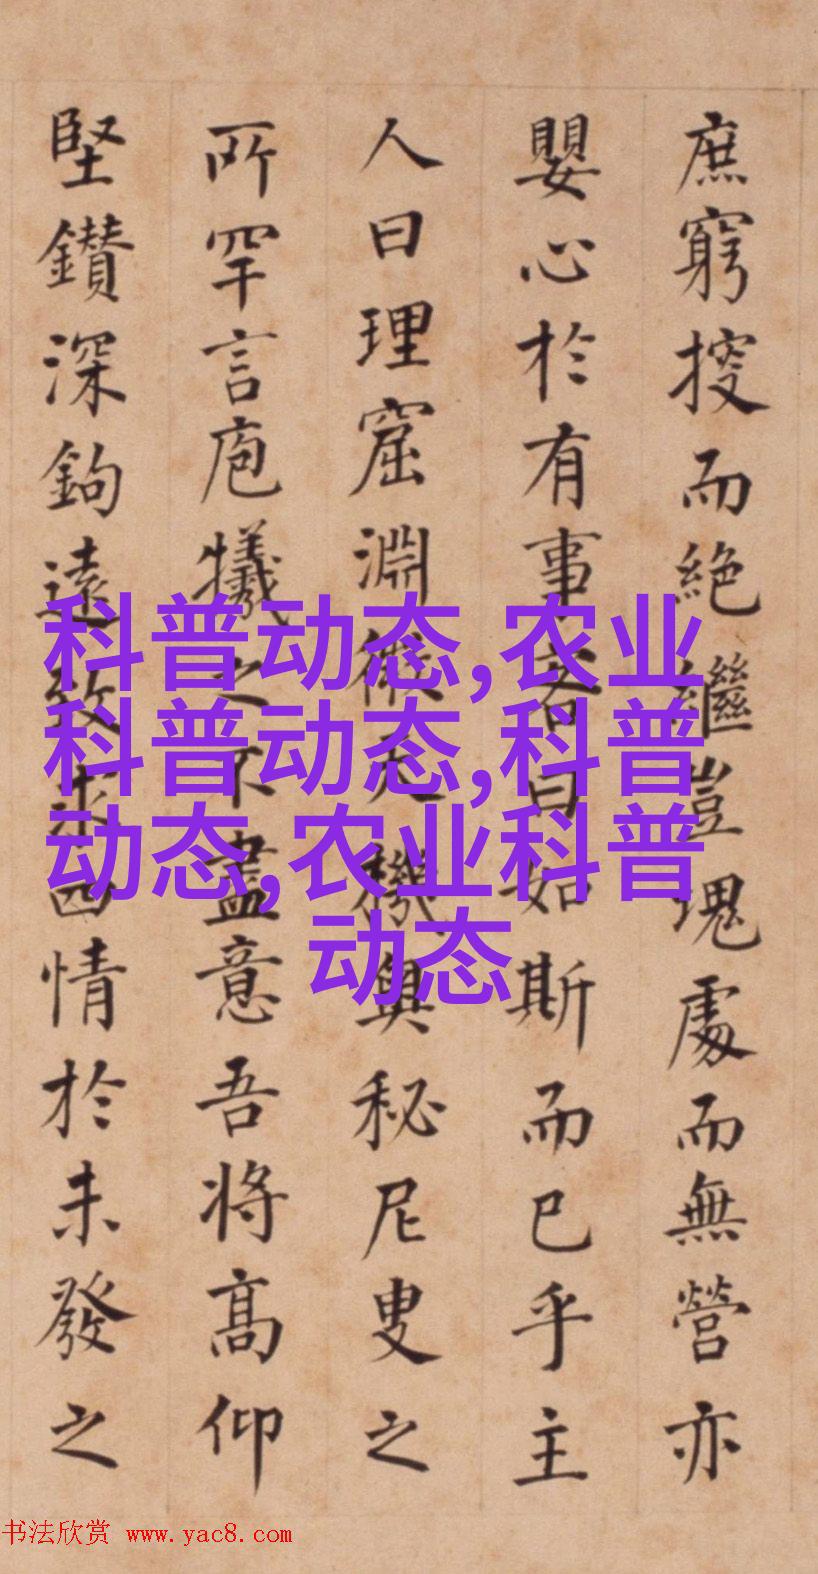 庶窮搜而絶繼豈塊處而無營亦
嬰心於有事客曰如斯而已乎主
人曰理窟淵微天機奥秘尼叟之
所罕言庖犧之不盡意吾将髙仰
堅鑽深鉤遠致求四情於未發之
科普动态,农业
科普动态,科普
动态,农业科普
动态
书法欣赏 www.yac8.com